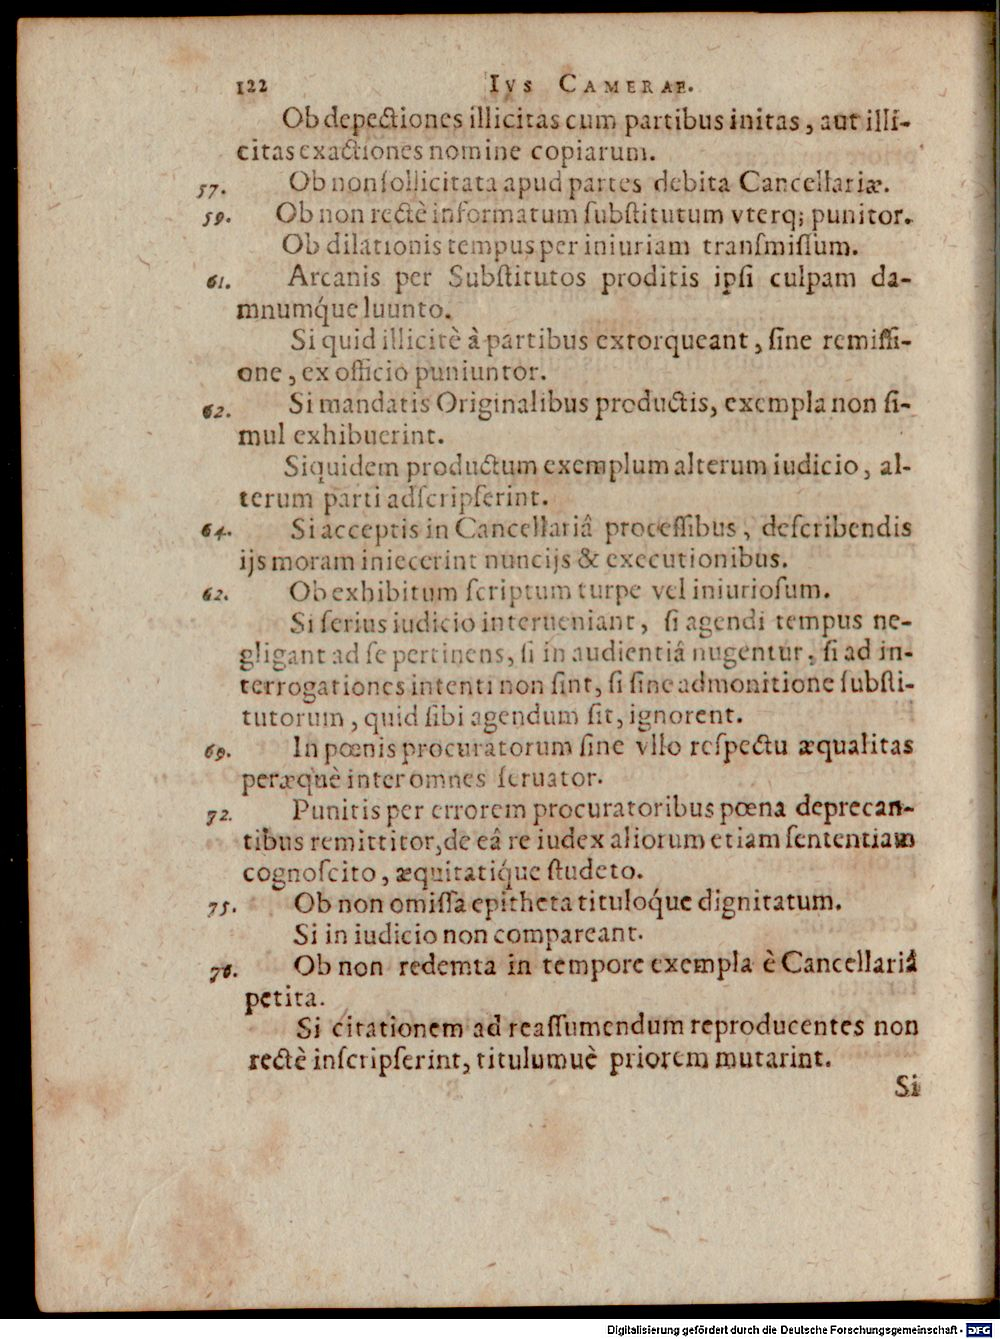 122 IVS CAMERAE.
Ob depectiones illicitas cum partibus initas, aut illi-
citas exactiones nomine copiarum.
57. Ob non ſollicitata apud partes debita Cancellariæ.
59. Ob non rectè informatum ſubſtitutum vterq; punitor.
Ob dilationis tempus per iniuriam tranſmiſſum.
61. Arcanis per Subſtitutos proditis ipſi culpam da-
mnumq́ue luunto.
Si quid illicitè à partibus extorqueant, ſine remiſſi-
one, ex officio puniuntor.
62. Si mandatis Originalibus productis, exempla non ſi-
mul exhibuerint.
Siquidem productum exemplum alterum iudicio, al-
terum parti adſcripſerint.
64. Si acceptis in Cancellariâ proceſſibus, deſcribendis
ijs moram iniecerint nuncijs & executionibus.
62. Ob exhibitum ſcriptum turpe vel iniurioſum.
Si ſerius iudicio interueniant, ſi agendi tempus ne-
gligant ad ſe pertinens, ſi in audientiâ nugentur, ſi ad in-
terrogationes intenti non ſint, ſi ſine admonitione ſubſti-
tutorum, quid ſibi agendum ſit, ignorent.
69. In pœnis procuratorum ſine vllo reſpectu æqualitas
peræquè inter omnes ſeruator.
72. Punitis per errorem procuratoribus pœna deprecan-
tibus remittitor, de eâ re iudex aliorum etiam ſententiam
cognoſcito, æquitatiq́ue ſtudeto.
75. Ob non omiſſa epitheta tituloq́ue dignitatum.
Si in iudicio non compareant.
76. Ob non redemta in tempore exempla è Cancellariâ
petita.
Si citationem ad reaſſumendum reproducentes non
rectè inſcripſerint, titulumuè priorem mutarint.
Si
Digitalisierung gefördert durch die Deutsche Forschungsgemeinschaft - DFG